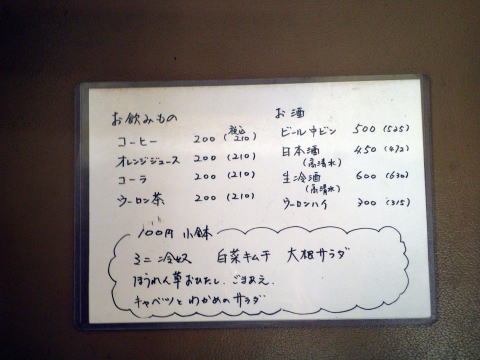 お飲みもの
税込
コーヒー 200 (210)
オレンジジュース 200 (210)
コーラ 200 (210)
ウーロン茶 200 (210)
お酒
ビール中ビン 500 (525)
日本酒 450 (472)
(高清水)
生冷酒 600 (630)
(高清水)
ウーロンハイ 300 (315)
100円 小鉢
ミニ冷奴 白菜キムチ 大根サラダ
ほうれん草おひたし、ごまあえ、
キャベツとわかめのサラダ